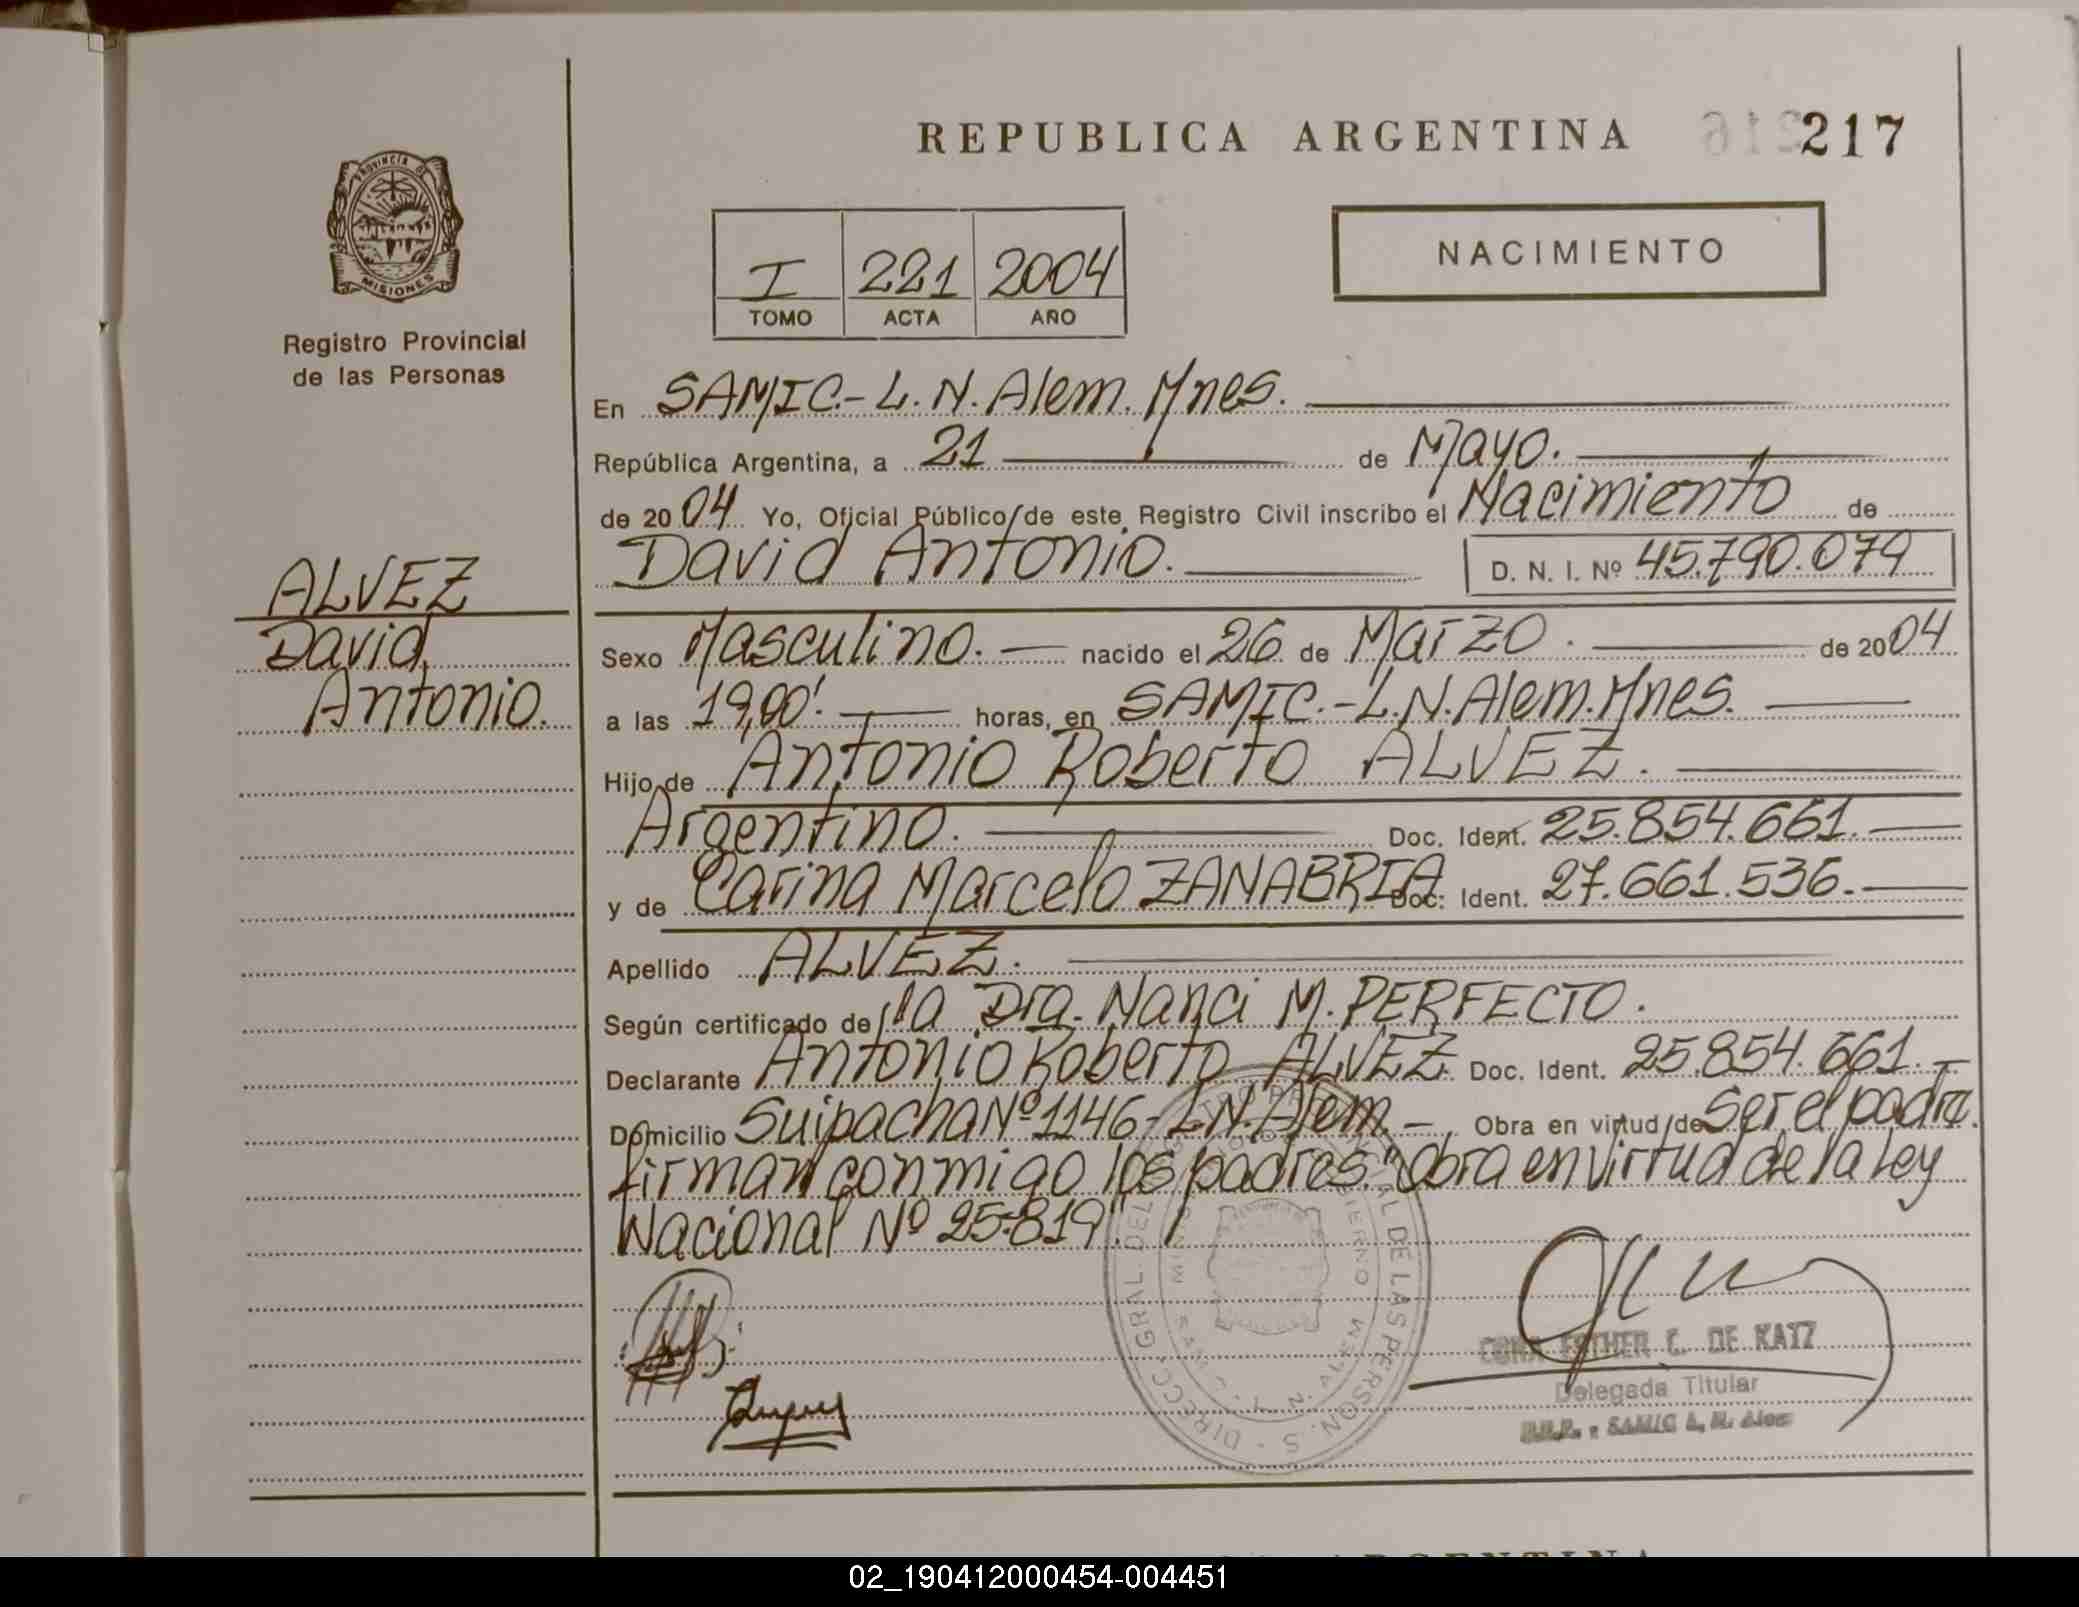 REPUBLICA ARGENTINA 217
PROVINCIA DE
MISIONES
Registro Provincial
de las Personas
NACIMIENTO
I 221 2004
TOMO ACTA AÑO
En SAMIC.-L.N.Alem.Mnes.
República Argentina, a 21 de Mayo.
de 2004 Yo, Oficial Público de este Registro Civil inscribo el Nacimiento de
David Antonio. D. N. I. Nº 45.790.079
ALVEZ
David
Antonio.
Sexo Masculino. nacido el 26 de Marzo. de 2004
a las 19,00'. horas, en SAMIC.-L.N.Alem.Mnes.
Hijo de Antonio Roberto ALVEZ.
Argentino. Doc. Ident. 25.854.661.
y de Carina Marcelo ZANABRIA Doc. Ident. 27.661.536.
Apellido ALVEZ.
Según certificado de la Dra. Nanci M. PERFECTO.
Declarante Antonio Roberto ALVEZ. Doc. Ident. 25.854.661.
Domicilio Suipacha Nº 1146-L.N.Alem.- Obra en virtud de Ser el padre.
firman conmigo los padres. "Obra en virtud de la Ley
Nacional Nº 25.819".
ESTHER C. DE KATZ
Delegada Titular
SAMIC L. N. Alem
02_190412000454-004451